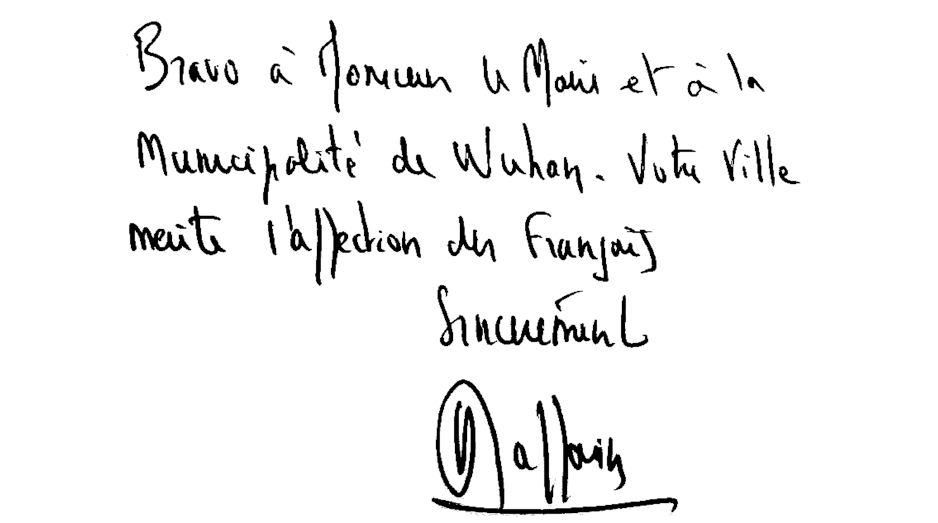 Bravo à Monsieur le Maire et à la
Municipalité de Wuhan. Votre Ville
mérite l'affection des Français
Sincèrement
Raffarin